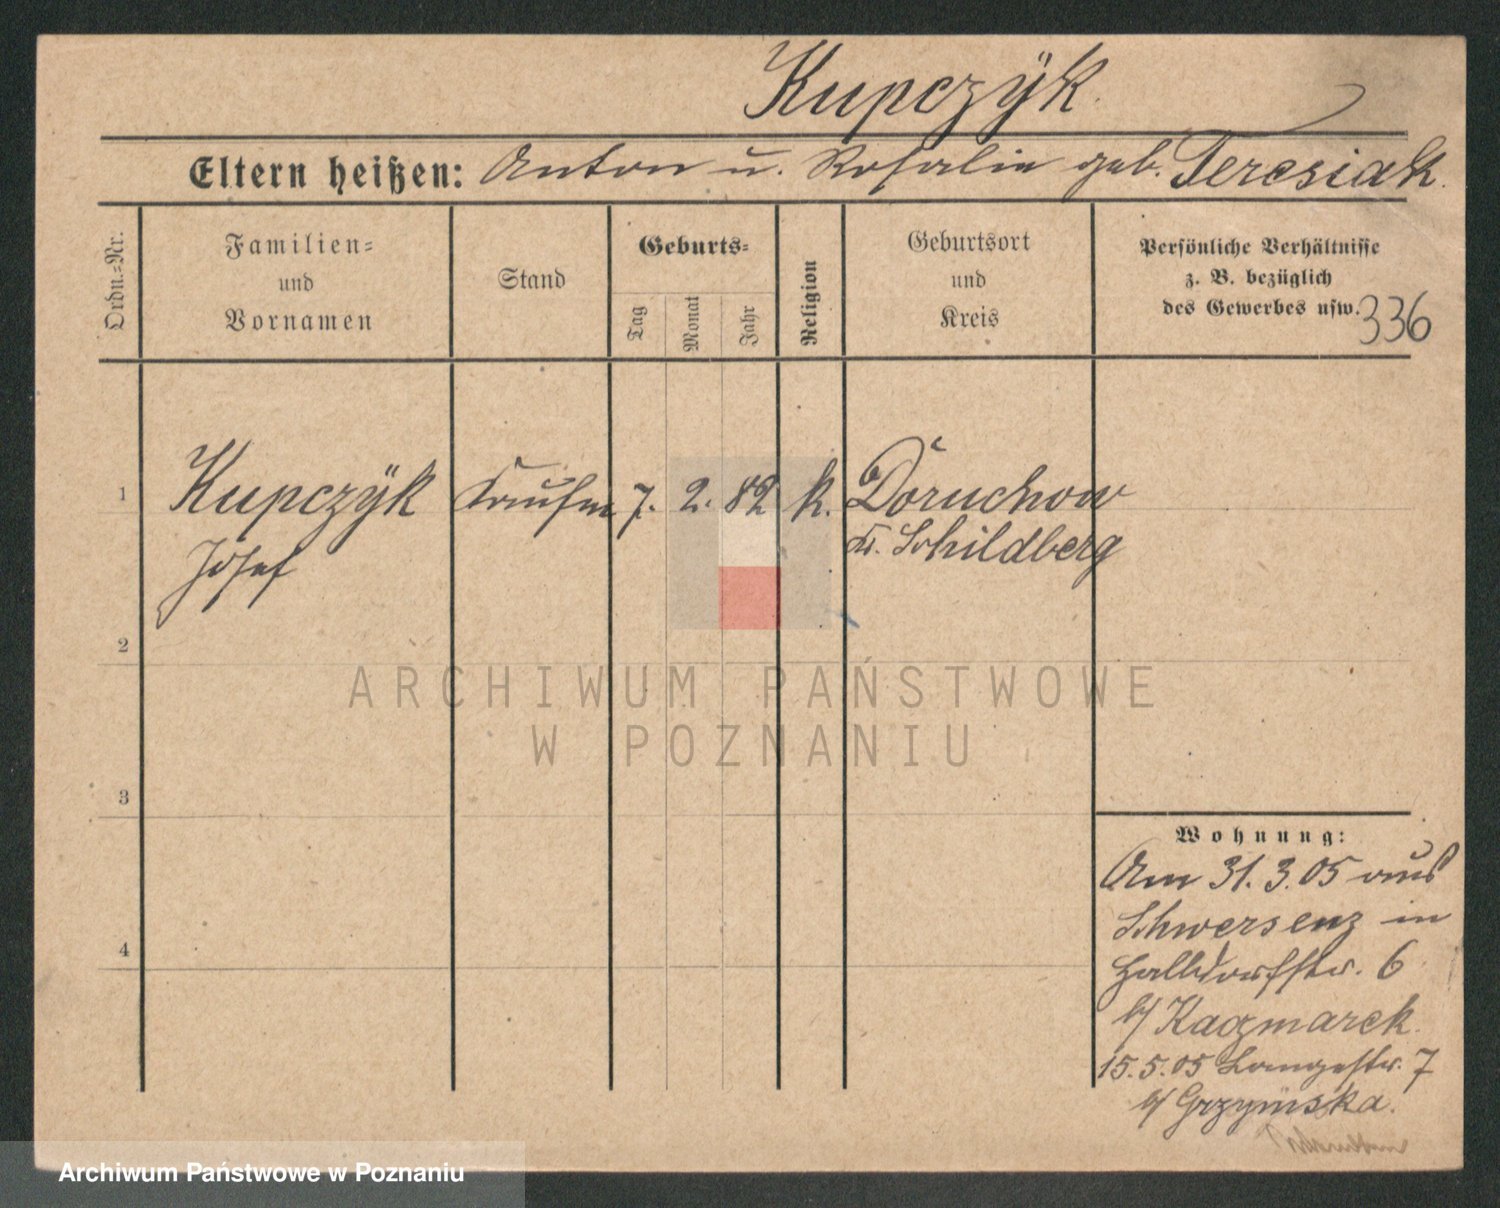 Kupczÿk.
Eltern heißen: Anton u. Rosalie geb. Teresiak.
Ordn.=Nr.
Familien=
und
Vornamen
Stand
Geburts=
Tag
Monat
Jahr
Religion
Geburtsort
und
Kreis
Persönliche Verhältnisse
z. B. bezüglich
des Gewerbes usw.
336
1 Kupczÿk Kaufm 7. 2. 82 k. Doruchow
Josef Kr. Schildberg
2
3
4
ARCHIWUM PAŃSTWOWE
W POZNANIU
Wohnung:
Am 31. 3. 05 aus
Schwersenz in
Halldorffstr. 6
b/ Kazmarek.
15. 5. 05 Langestr. 7
b/ Grzymska.
Archiwum Państwowe w Poznaniu